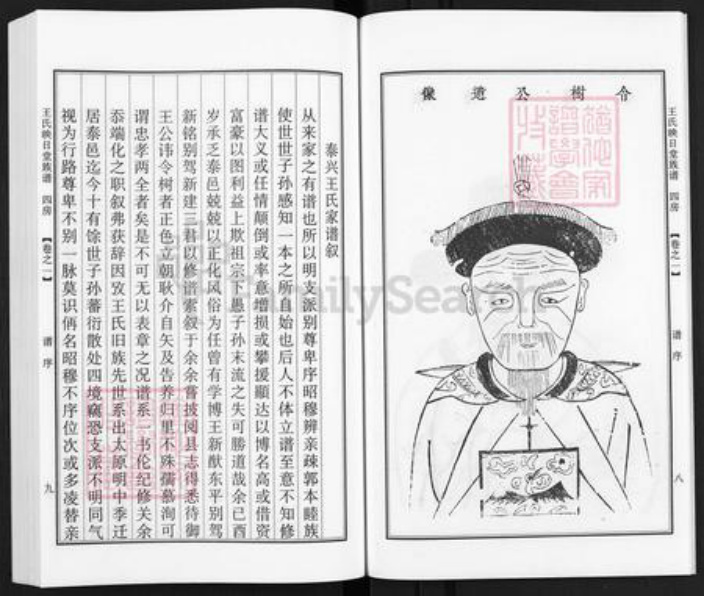 令樹公道像
王氏映日堂族谱 四房 【卷之一】 谱序 八
泰兴王氏家谱叙
从来家之有谱也所以明支派别尊卑序昭穆辨亲疏郭本睦族
使世世子孙感知一本之所自始也后人不体立谱至意不知修
谱大义或任情颠倒或率意增损或攀援顯达以博名高或借资
富豪以图利益上欺祖宗下愚子孙末流之失可勝道哉余己酉
岁承乏泰邑兢兢以正化风俗为任曾有学博王新猷东平别驾
新铭别驾新建三君以修谱索叙于余余嘗披阅县志得悉待御
王公讳令树者正色立朝耿介自矢及告养归里不殊孺慕洵可
谓忠孝两全者矣是不可无以表章之况谱系一书伦纪修关余
忝端化之职叙弗获辞因攷王氏旧族先世系出太原明中季迁
居泰邑迄今十有馀世子孙蕃衍散处四境窺恐支派不明同气
视为行路尊卑不别一脉莫识俩名昭穆不序位次或多凌替亲
王氏映日堂族谱 四房 【卷之一】 谱序 九
FamilySearch